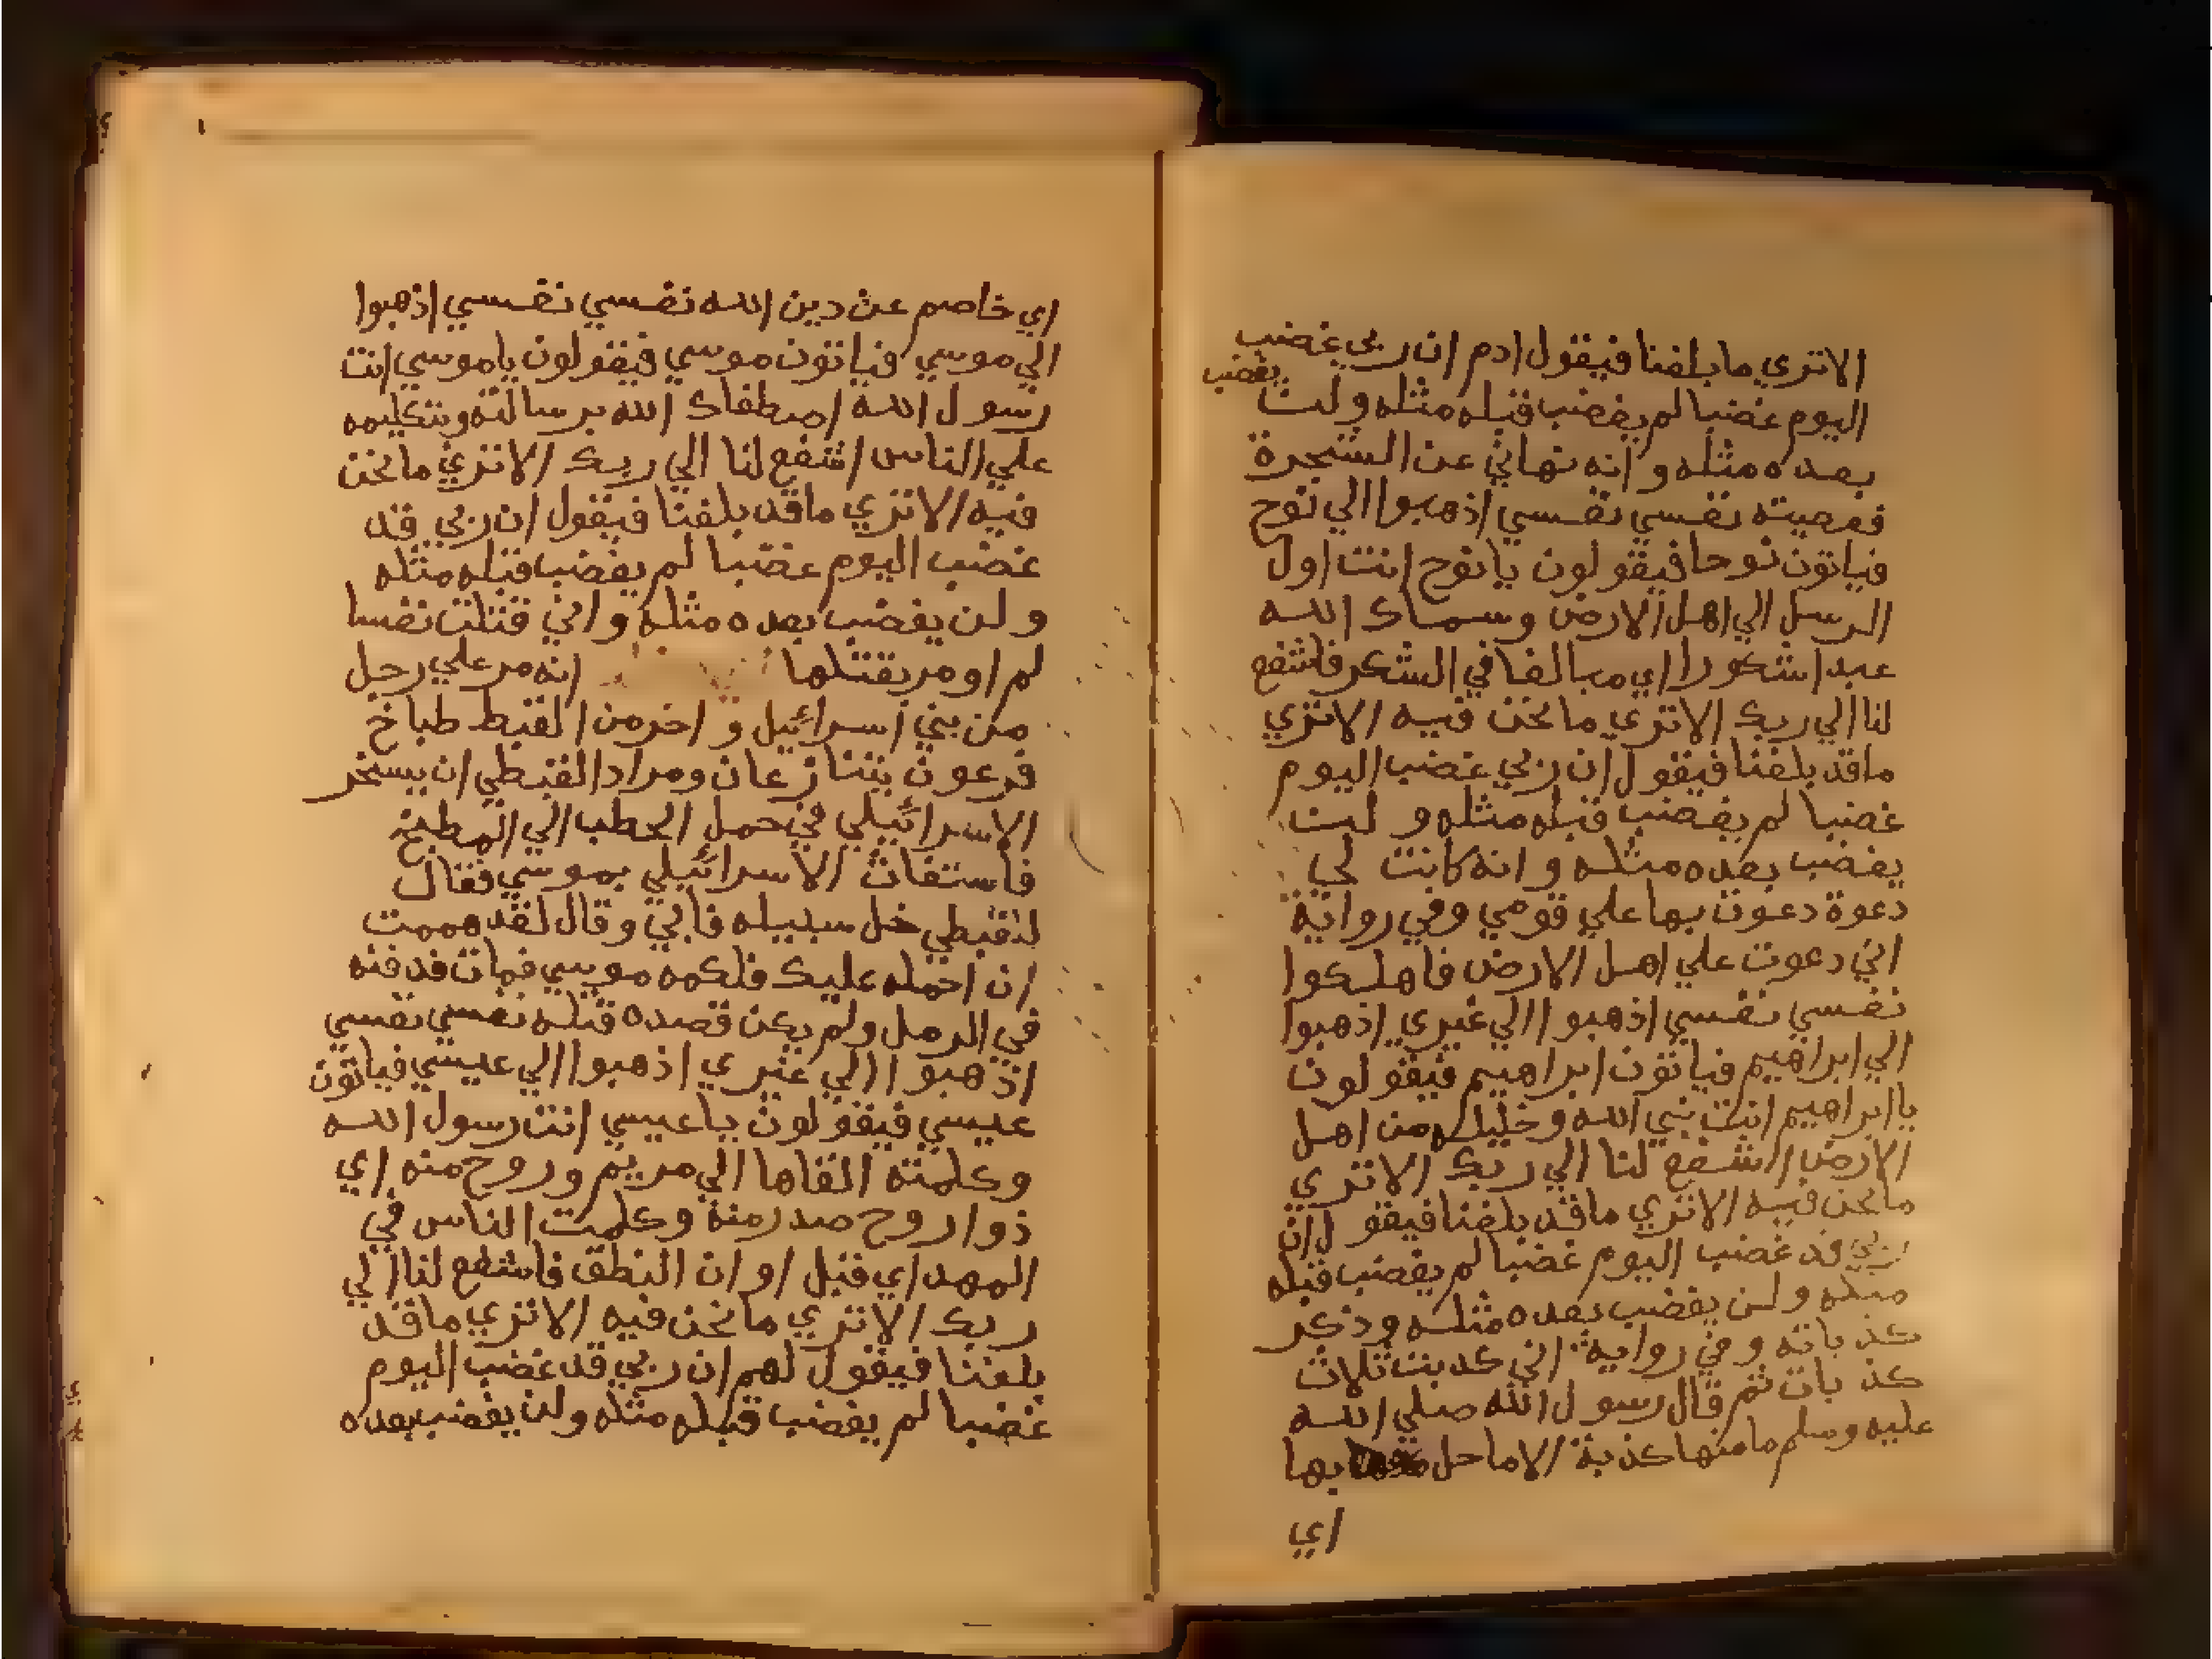 الاتري ما بلغنا فيقول ادم ان ربي غضب
اليوم غضبا لم يغضب قبله مثله ولن يغضب
بعده مثله وانه نهاني عن الشجرة
فعصيته نفسي نفسي اذهبوا الي نوح
فياتون نوحا فيقولون يا نوح انت اول
الرسل الي اهل الارض وسماك الله
عبدا شكورا اي مبالغا في الشكر فاشفع
لنا الي ربك الاتري ما نحن فيه الاتري
ما قد بلغنا فيقول ان ربي غضب اليوم
غضبا لم يغضب قبله مثله ولن
يغضب بعده مثله وانه كانت لي
دعوة دعوت بها علي قومي وفي رواية
اني دعوت علي اهل الارض فاهلكوا
نفسي نفسي اذهبوا الي غيري اذهبوا
الي ابراهيم فياتون ابراهيم فيقولون
يا ابراهيم انت نبي الله وخليله من اهل
الارض اشفع لنا الي ربك الاتري
ما نحن فيه الاتري ما قد بلغنا فيقول ان
ربي قد غضب اليوم غضبا لم يغضب قبله
مثله ولن يغضب بعده مثله وذكر
كذباته وفي رواية اني كذبت ثلاث
كذبات ثم قال رسول الله صلي الله
عليه وسلم ما منها كذبة الا ما حل بها
اي
اي خاصم عن دين الله نفسي نفسي اذهبوا
الي موسي فياتون موسي فيقولون يا موسي انت
رسول الله اصطفاك الله برسالته وبتكليمه
علي الناس اشفع لنا الي ربك الاتري ما نحن
فيه الاتري ما قد بلغنا فيقول ان ربي قد
غضب اليوم غضبا لم يغضب قبله مثله
ولن يغضب بعده مثله واني قتلت نفسا
لم اومر بقتلها انه مر علي رجل
من بني اسرائيل و اخر من القبط طباخ
فرعون يتنازعان ومراد القبطي ان يسخر
الاسرائيلي في حمل الحطب الي المطبخ
فاستغاث الاسرائيلي بموسي فقال
للقبطي خل سبيله فابي وقال لقد هممت
ان احمله عليك فلكمه موسي فمات فدفنه
في الرمل ولم يكن قصده قتله نفسي نفسي
اذهبوا الي غيري اذهبوا الي عيسي فياتون
عيسي فيقولون يا عيسي انت رسول الله
وكلمته القاها الي مريم وروح منه اي
ذوا روح صدر منه وكلمت الناس في
المهد اي قبل اوان النطق فاشفع لنا الي
ربك الاتري ما نحن فيه الاتري ما قد
بلغنا فيقول لهم ان ربي قد غضب اليوم
غضبا لم يغضب قبله مثله ولن يغضب بعده